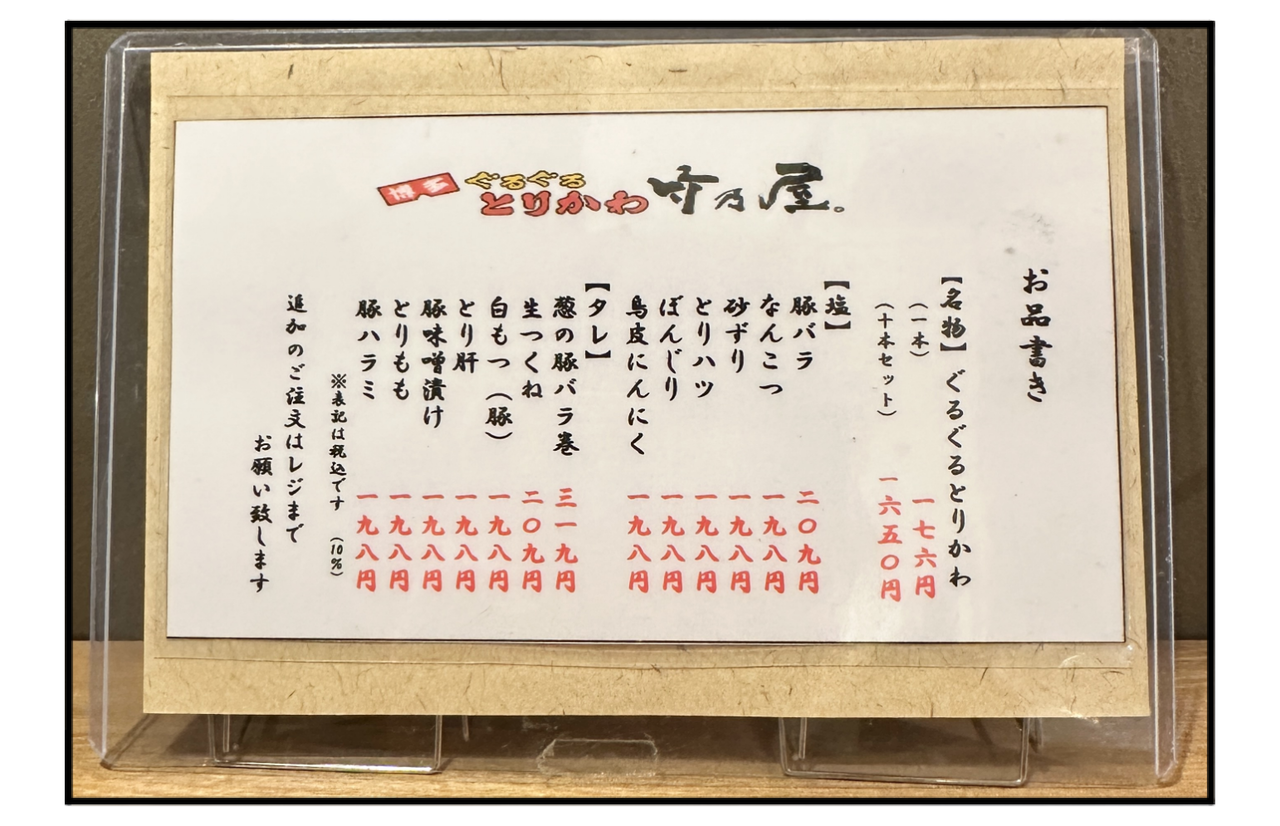 博多
ぐるぐる
とりかわ
竹乃屋。
お品書き
【名物】ぐるぐるとりかわ
(一本) 一七六円
(十本セット) 一六五〇円
【塩】
豚バラ 二〇九円
なんこつ 一九八円
砂ずり 一九八円
とりハツ 一九八円
ぼんじり 一九八円
鳥皮にんにく 一九八円
【タレ】
葱の豚バラ巻 三一九円
生つくね 二〇九円
白もつ(豚) 一九八円
とり肝 一九八円
豚味噌漬け 一九八円
とりもも 一九八円
豚ハラミ 一九八円
※表記は税込です (10%)
追加のご注文はレジまで
お願い致します